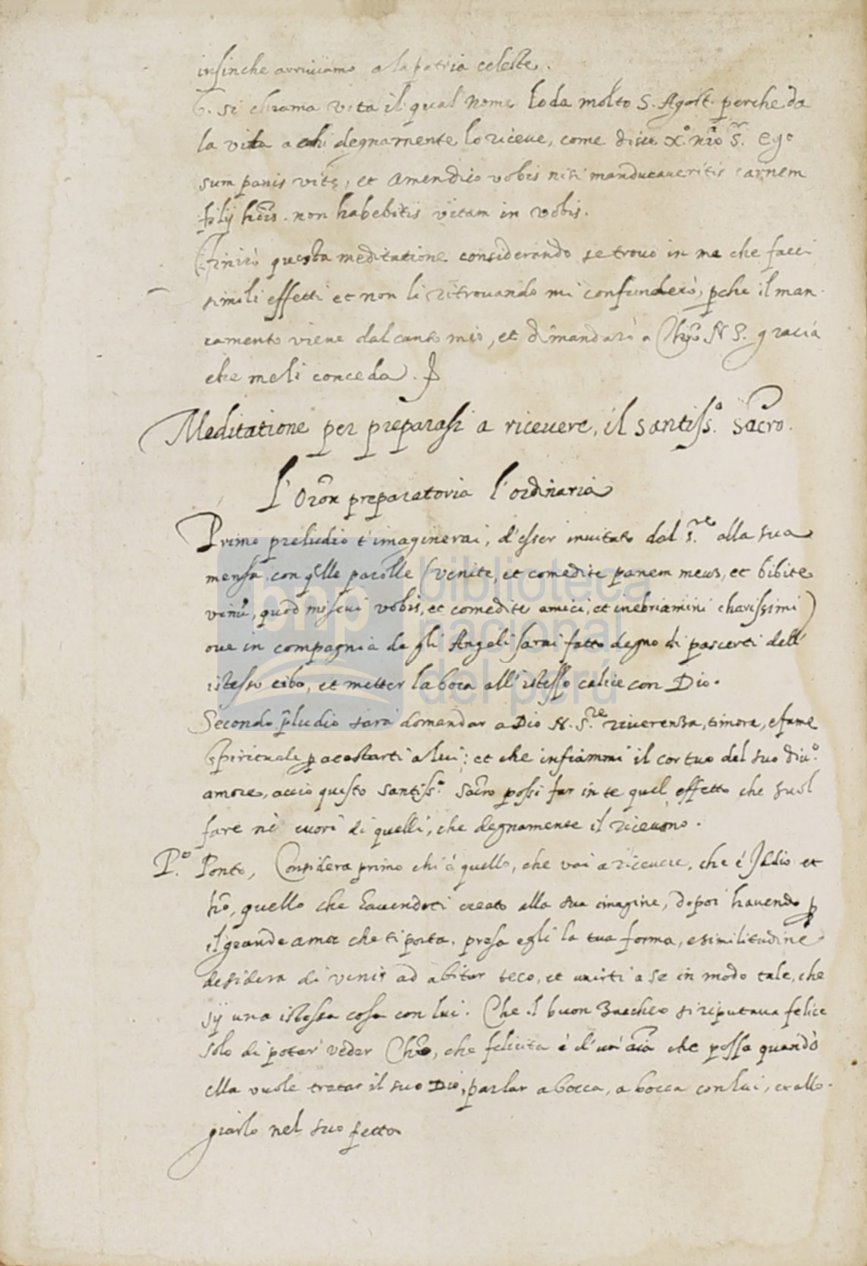 insinche arriviamo a la patria celeste.
6. si chiama vita il qual nome loda molto S. Agost. perche da
la vita a chi degnamente lo riceve, come dice Xº nrõ S. Ego
sum panis vitę, et Amen dico vobis nisi manducaveritis carnem
filij hõis. non habebitis vitam in vobis.
Finirò questa meditatione considerando se trovo in me che facci
simili effetti et non li ritrovando mi confunderò, pche il man-
camento viene dal canto mio, et dimandarò a N. S. gracia
che meli conceda.
Meditatione per preparasi a ricevere, il santissº. sacro.
L'Oron preparatoria l'ordinaria
Primo preludio t'imaginerai, d'esser invitato dal S.re alla sua
mensa con qlle parolle (venite, et comedite panem meuz, et bibite
vinũ, quod miscui vobis, et comedite amici, et inebriamini charissimi)
ove in compagnia de gli Angeli sarai fatto degno di pascerti dell'
istesso cibo, et metter la boca all'istesso calice con Dio.
Secondo pludio sarà domandar a Dio N. S.re riverenza, timore, e fame
spirituale p acostarti a lui; et che infiammi il cor tuo del suo divº.
amore, acciò questo santissº. sacro possi far in te quel effetto che suol
fare nè cuori di quelli, che degnamente il ricevono.
P.º Ponto, Considera primo chi è quello, che vai a ricevere, che è Iddio et
hõ, quello che havendoti creato alla sua imagine, dopoi havendo p
il grande amor che ti porta. presa egli la tua forma, e similitudine
desidera di venir ad abitar teco, et unirti a se in modo tale, che
sij una istessa cosa con lui. Che il buon Zaccheo si riputava felice
solo di poter veder Chrõ, che felicita è d'un'aĩa che possa quando
ella vuole tratar il suo Dio, parlar a bocca, a bocca con lui, et allo-
giarlo nel suo petto
bnp biblioteca
nacional
del perú